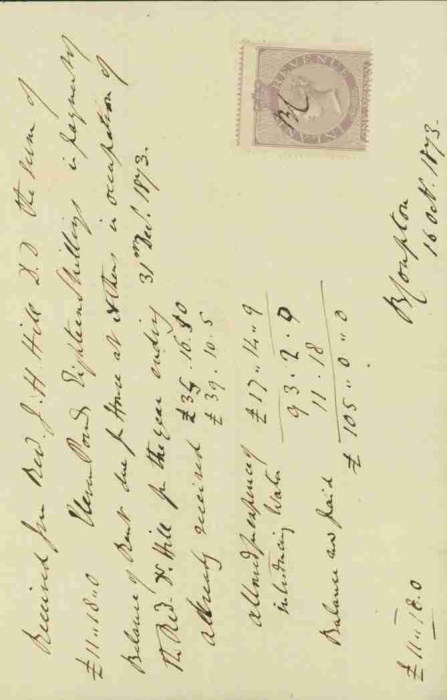 Received from Rev. J. H. Hill D.D. the sum of
£11..18..0 Eleven Pounds Eighteen Shillings in payment of
Balance of Rent due for House at Athens in occupation of
the Rev. Dr. Hill for the year ending 31st Decr. 1873.
Already received £35.16.10
£39.10.5
allowed for expenses of
introducing Water £17..14..9
93.2.0
Balance now paid 11.18
£105..0..0
£11..18.0
Brompton
16 Oct. 1873.
INLAND REVENUE